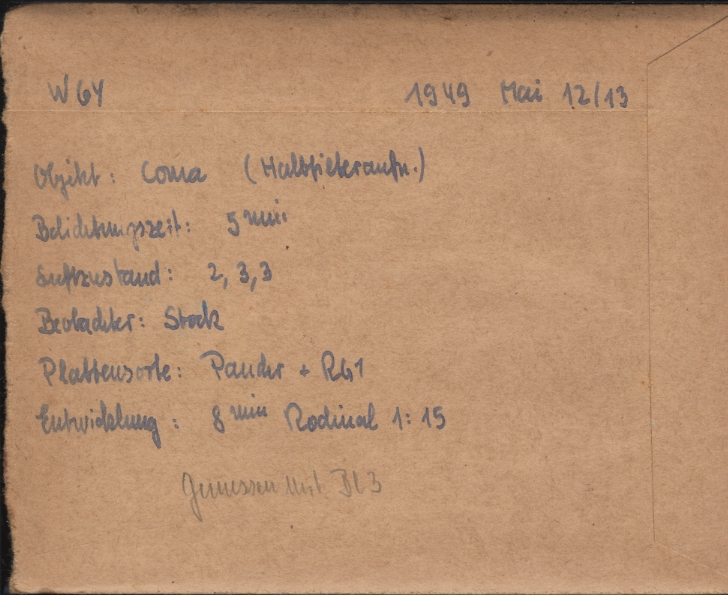 W 64 1949 Mai 12/13
Objekt: Coma (Halbfilteraufn.)
Belichtungszeit: 5 min
Luftzustand: 2, 3, 3
Beobachter: Stock
Plattensorte: Panchr + RG1
Entwicklung: 8 min Rodinal 1:15
Gemessen mit Bl 3